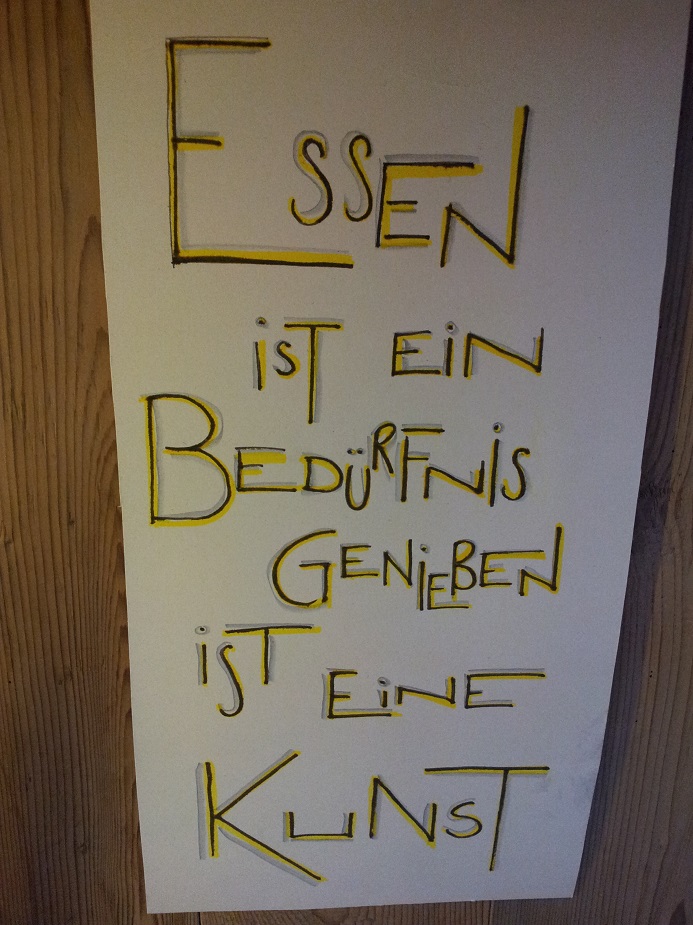 ESSEN
iST EiN
BEDÜRFNiS
GENiEßEN
iST EiNE
KUNST